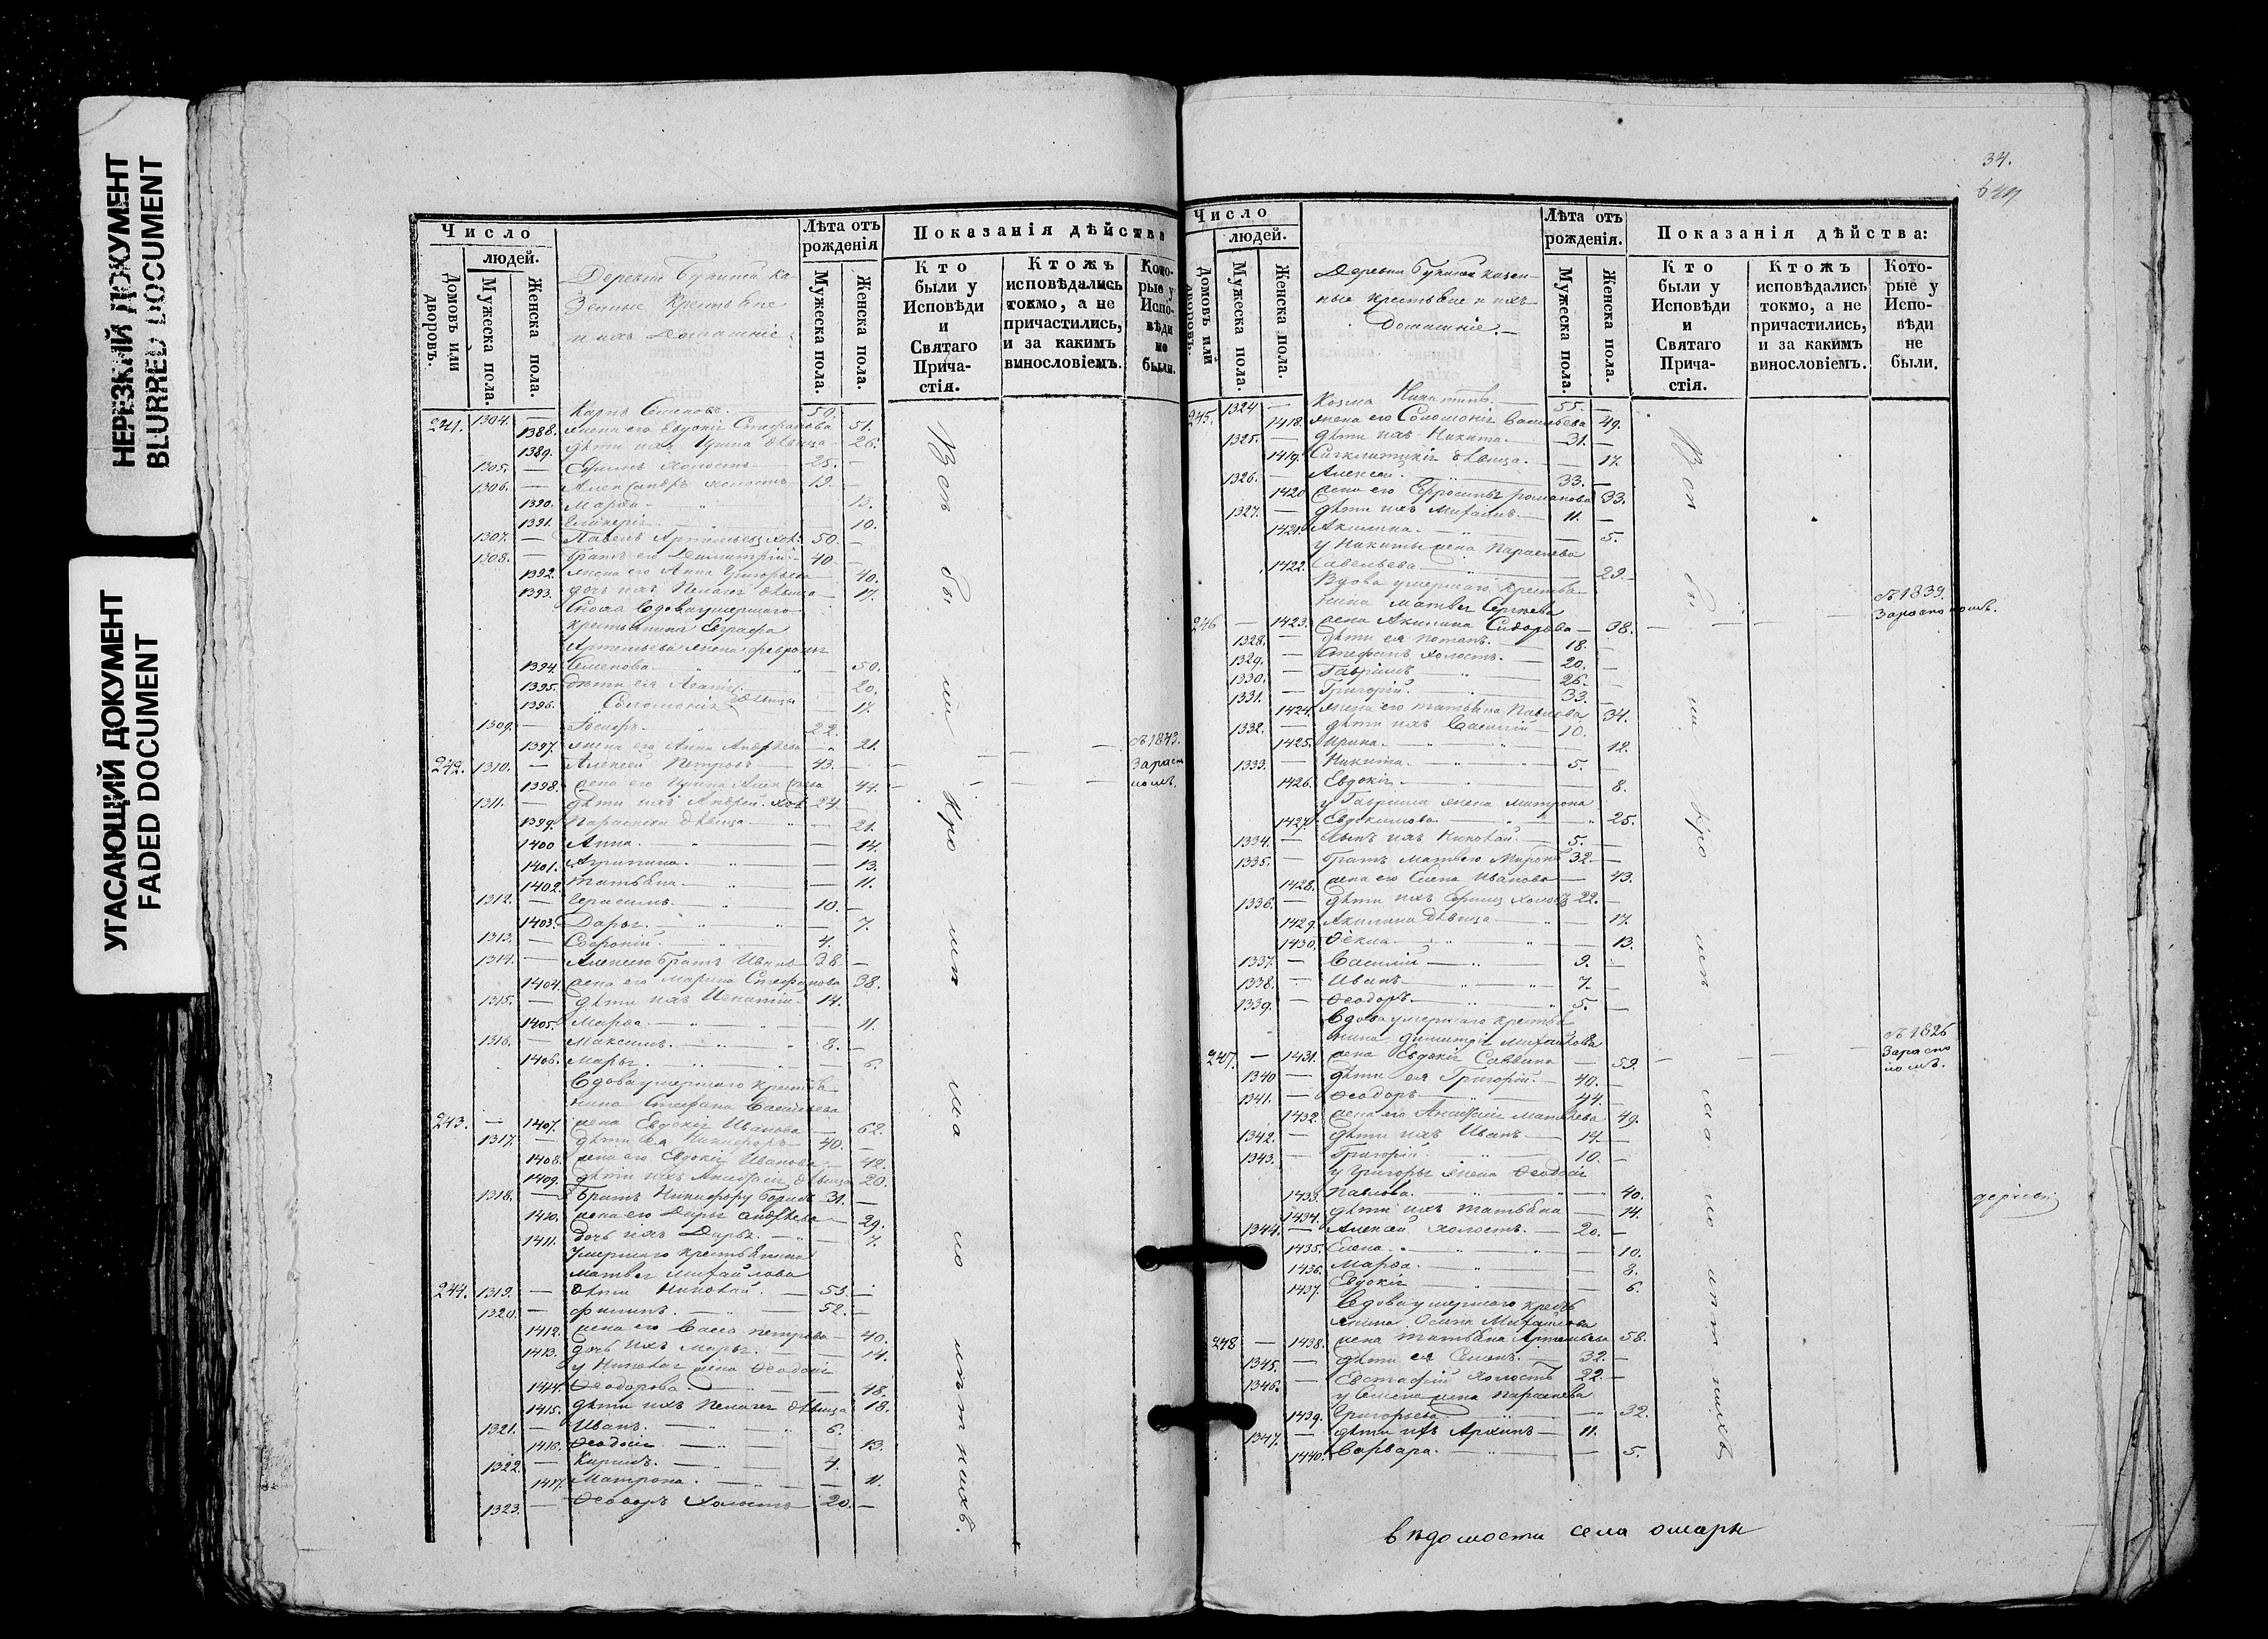 НЕРЕЗКИЙ ДОКУМЕНТ
BLURRED DOCUMENT
УГАСАЮЩИЙ ДОКУМЕНТ
FADED DOCUMENT
Число
людей.
Домовъ или дворовъ.
Мужеска пола.
Женска пола.
Деревни Ка
зенные Крестьяне
и ихъ Домашніе.
Лѣта отъ рожденія
Мужеска пола.
Женска пола.
Показанія дѣйства
Кто были у Исповѣди и Святаго Прича-стія.
Ктожъ исповѣдались токмо, а не причастились, и за какимъ винословіемъ.
Кото-рые у Испо-вѣди не были.
241. 1304. — Карпъ Семеновъ — 50.
1388. жена его Евдокія Стефанова 51.
1389. дѣти ихъ Ирина дѣвица — 26.
1305. — Ефимъ холостъ — 25. —
1306. — Александръ холостъ 19. —
1390. Марѳа — 13.
1391. Гликерія — 10.
1307. — Павелъ Артемьевъ хол. 50. —
1308. — Братъ его Димитрій — 40 —
1392. жена его Анна Григорьева 40.
1393. дочь ихъ Пелагея дѣвица — 17.
Сноха вдова умершаго
крестьянина Евграфа
Артемьева жена Февронья
1394. Семенова — 50.
1395. дѣти ея Агапія — 20.
1396. Соломонія дѣвицы — 17.
1309. — 22.
1397. жена его Анна Андрѣева — 21.
242. 1310. — Алексей Петровъ — 43. —
1398. жена его Ирина 44.
1311. — дѣти ихъ Андрей хол. 24.
1399. Параскева дѣвица — 21.
1400 Анна — 14.
1401. Агрипина — 13.
1402. Татьяна — 11.
1312. — Герасимъ — 10. —
1403. Дарья — 7.
1313. — Софроній — 4.
1314. — Алексею братъ Иванъ 38. —
1404. жена его Марина Стефанова 38.
1315. — дѣти ихъ Игнатій — 14.
1405. Марѳа — 11.
1316. — Максимъ — 8. —
1406. Марья — 6.
Вдова умершаго крестья
нина Стефана Васильева
243. — 1407. жена Евдокія Иванова — 62.
1317. — дѣти ея Никифоръ — 40. —
1408. жена его Евдокія Иванова — 42.
1409. дѣти ихъ Анисія дѣвица 20.
1318. — Братъ Никифору Борисъ 31. —
1410. жена его Дарья Андрѣева — 29.
1411. дочь ихъ Дарья — 7.
Умершаго крестьянина
Матвея Михайлова
244. 1319. — дѣти Николай — 53. —
1320. — Филипъ — 52. —
1412. жена его Васса Петрова — 40.
1413. дочь ихъ Марья — 14.
у Николая жена Ѳеодосія
1414. Ѳеодорова — 48.
1415. дѣти ихъ Пелагея дѣвица 18.
1321. — Иванъ — 6.
1416. Ѳеодосія — 13.
1322. — Кирилъ — 4.
1417. Матрона — 11.
1323. — Ѳеодоръ холостъ 20. —
Вси бы ли Кро мѣ ма ло лѣт нихъ.
съ 1843.
За раско
ломъ.
34.
Число
людей.
Домовъ или дворовъ.
Мужеска пола.
Женска пола.
Деревни казен-
ные крестьяне и ихъ
Домашніе. —
Лѣта отъ рожденія.
Мужеска пола.
Женска пола.
Показанія дѣйства:
Кто были у Исповѣди и Святаго Прича-стія.
Ктожъ исповѣдались токмо, а не причастились, и за какимъ винословіемъ.
Кото-рые у Испо-вѣди не были.
245. 1324 — Козма Никитинъ — 55. —
1418. жена его Соломонія Васильева 49.
1325. — дѣти ихъ Никита — 31. —
1419. Сигклитикія дѣвица — 17.
1326. — Алексей — 33. —
1420 жена его Ефросинья Романова 33.
1327. — дѣти ихъ Михаилъ — 11. —
1421. Акилина — 5.
у Никиты жена Параскева
1422. Савельева — 29.
Вдова умершаго крестья
нина Матвея Сергѣева
246 — 1423. жена Акилина Сидорова — 38.
1328. — дѣти ея Потапъ — 18. —
1329. — Стефанъ холостъ — 20. —
1330. — Гавріилъ — 26. —
1331. — Григорій — 33. —
1424. жена его Татьяна Павлова 34.
1332. — дѣти ихъ Василій — 10.
1425. Ирина — 12.
1333. — Никита — 5. —
1426. Евдокія — 8.
у Гавріила жена Матрона
1427. Евдокимова — 25.
1334. — сынъ ихъ Николай — 5. —
1335. — братъ Матвею Миронъ 32. —
1428. жена его Елена Иванова — 43.
1336. — дѣти ихъ Ефимъ холостъ 22. —
1429. Акилина дѣвица — 17.
1430. Ѳекла — 13.
1337. — Василій — 9. —
1338. — Иванъ — 7. —
1339. — Ѳеодоръ — 5. —
Вдова умершаго крестья
нина Димитрія Михайлова
247. — 1431. жена Евдокія Саввина — 59.
1340 — дѣти ея Григорій — 40. —
1341. — Ѳеодоръ — 44. —
1432. жена его Анисія Матвѣева 49.
1342. — дѣти ихъ Иванъ — 14. —
1343. — Григорій — 10. —
у Григорья жена Ѳеодосія
1433. Павлова — 40.
1434. дѣти ихъ Татьяна — 14.
1344. — Алексей холостъ — 20. —
1435. Елена — 10.
1436. Марѳа — 8.
1437. Евдокія — 6.
Вдова умершаго кресть
янина Осипа Михайлова
248 — 1438. жена Татьяна Артемьева 58.
1345. — дѣти ея Семенъ — 32. —
1346. — Евстафій холостъ 22 —
у Семена жена Параскева
1439. Григорьева — 32.
1347. — дѣти ихъ Архипъ — 11. —
1440. Варвара — 5.
Вси бы ли Кро мѣ ма ло лѣт нихъ
съ 1839.
За расколомъ.
съ 1826
За раско
ломъ.
вѣдомости села омары